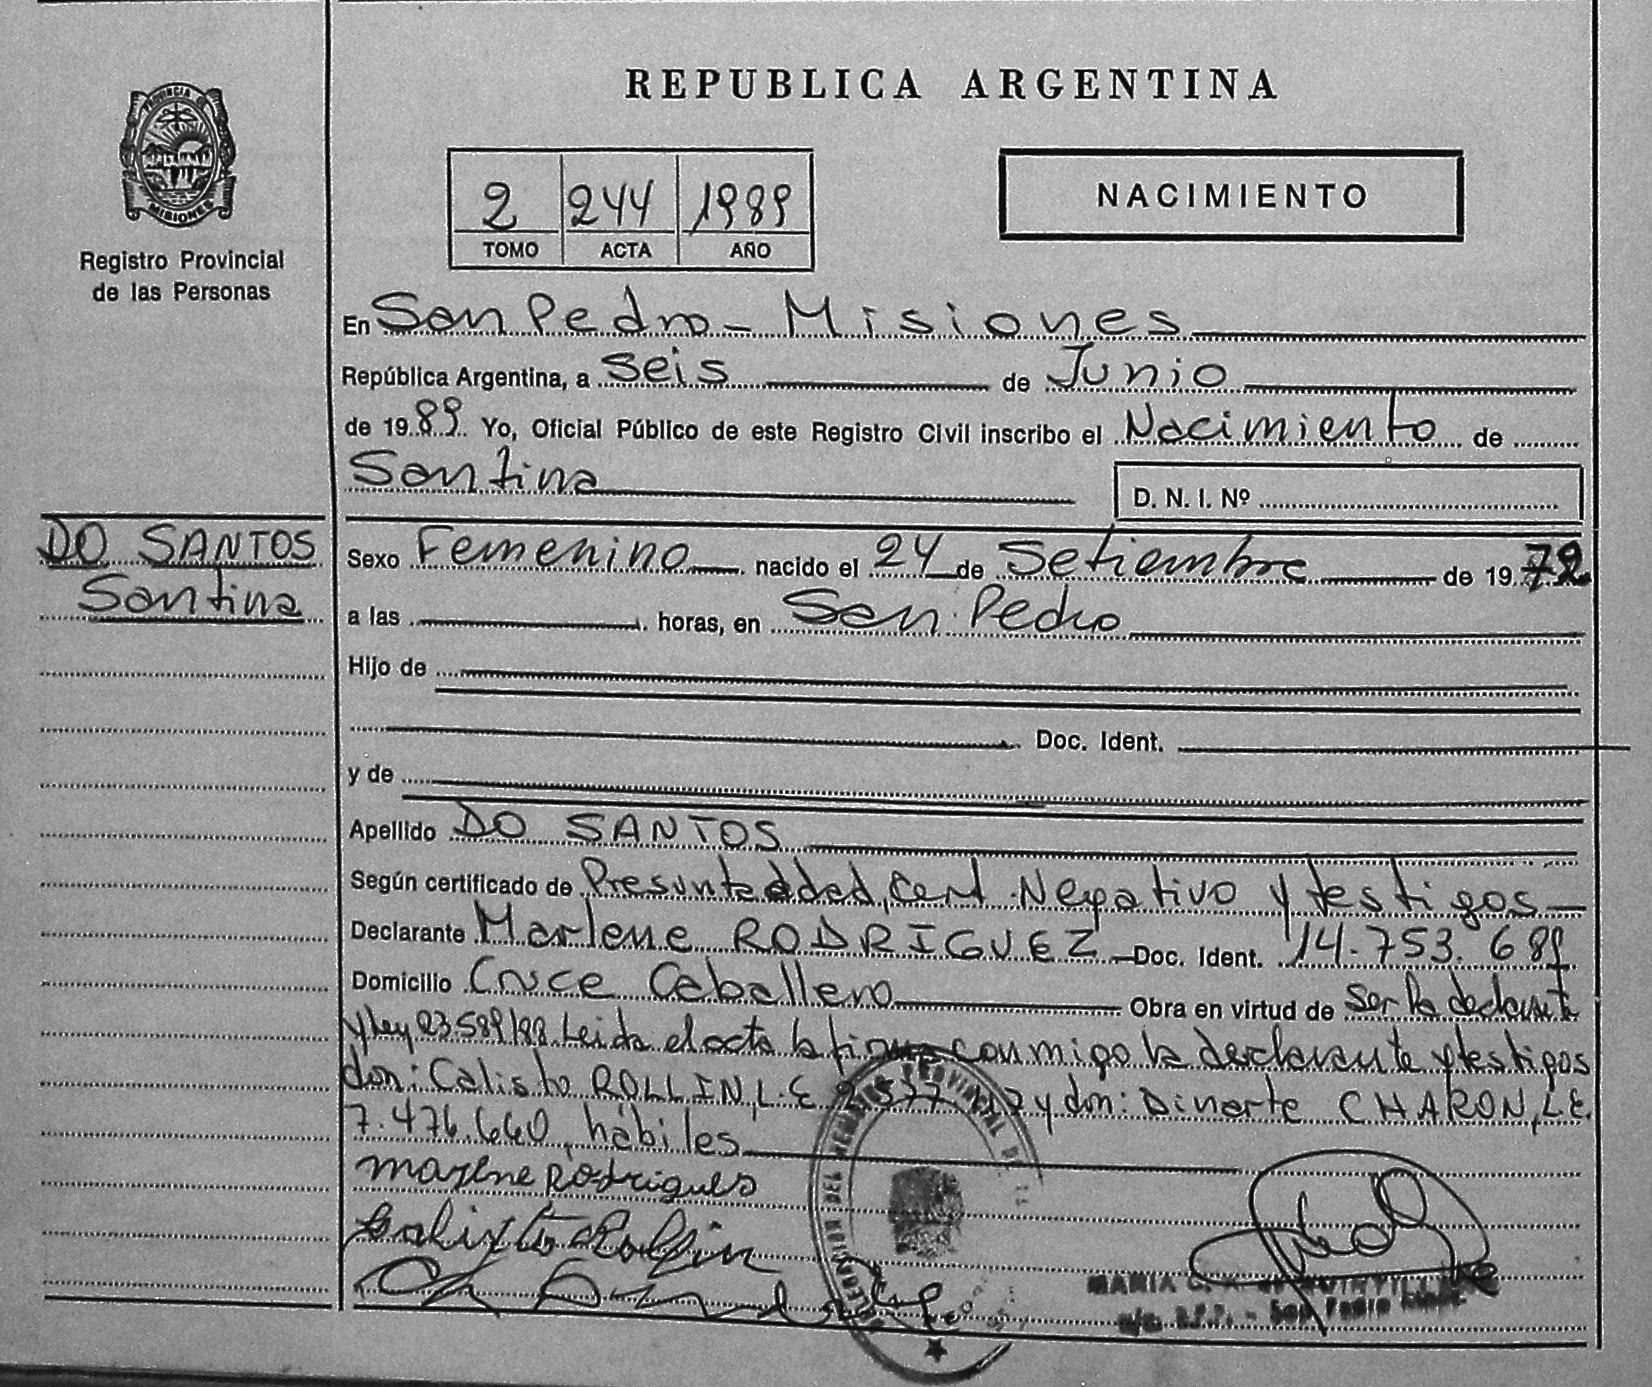 PROVINCIA DE
MISIONES
Registro Provincial
de las Personas
REPUBLICA ARGENTINA
2 244 1989
TOMO ACTA AÑO
NACIMIENTO
En San Pedro - Misiones
República Argentina, a seis de Junio
de 1989 Yo, Oficial Público de este Registro Civil inscribo el Nacimiento de
Santina
D. N. I. Nº
DO SANTOS
Santina
Sexo Femenino nacido el 24 de Setiembre de 1972
a las horas, en San Pedro
Hijo de
Doc. Ident.
y de
Apellido DO SANTOS
Según certificado de Presunta edad, Cert. Negativo y testigos
Declarante Marlene RODRIGUEZ Doc. Ident. 14.753.689
Domicilio Cruce Caballero Obra en virtud de ser la declarante
y Ley 23589/88. Leida el acta la firma conmigo la declarante y testigos
don: Calisto ROLLIN, L.E. y don: Dinarte CHARON, L.E.
7.476.660, hábiles
marlene Rodrigues
Calixto Rollin
REGISTRO PROVINCIAL DE
MARIA
San Pedro